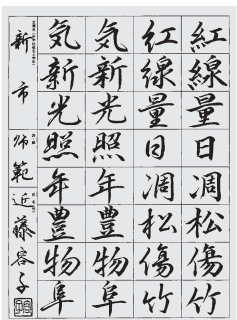 紅線量日凋松傷竹
紅線量日凋松傷竹
気新光照年豊物阜
気新光照年豊物阜
新市
師範
近藤容子